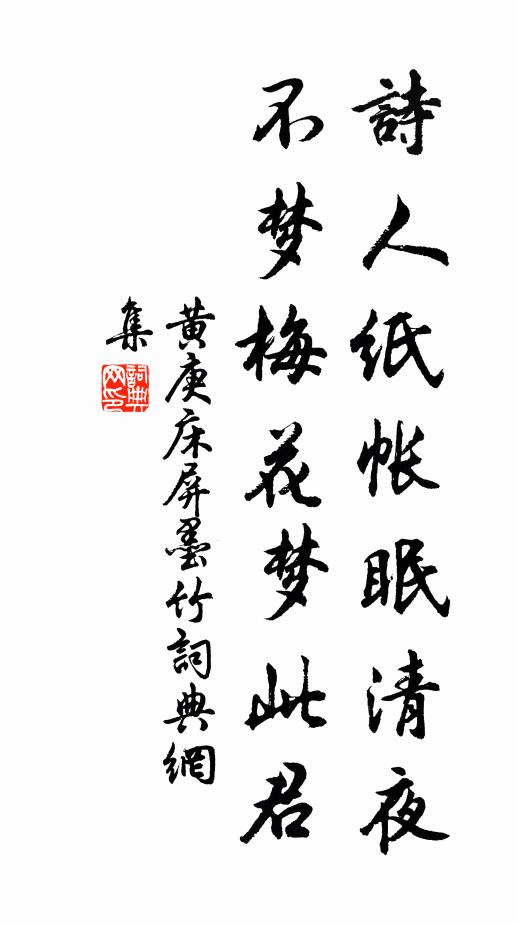 詩人紙帐眠清夜
不梦梅花梦此君
黄庚床屏墨竹詞典網
集
詞典
网印